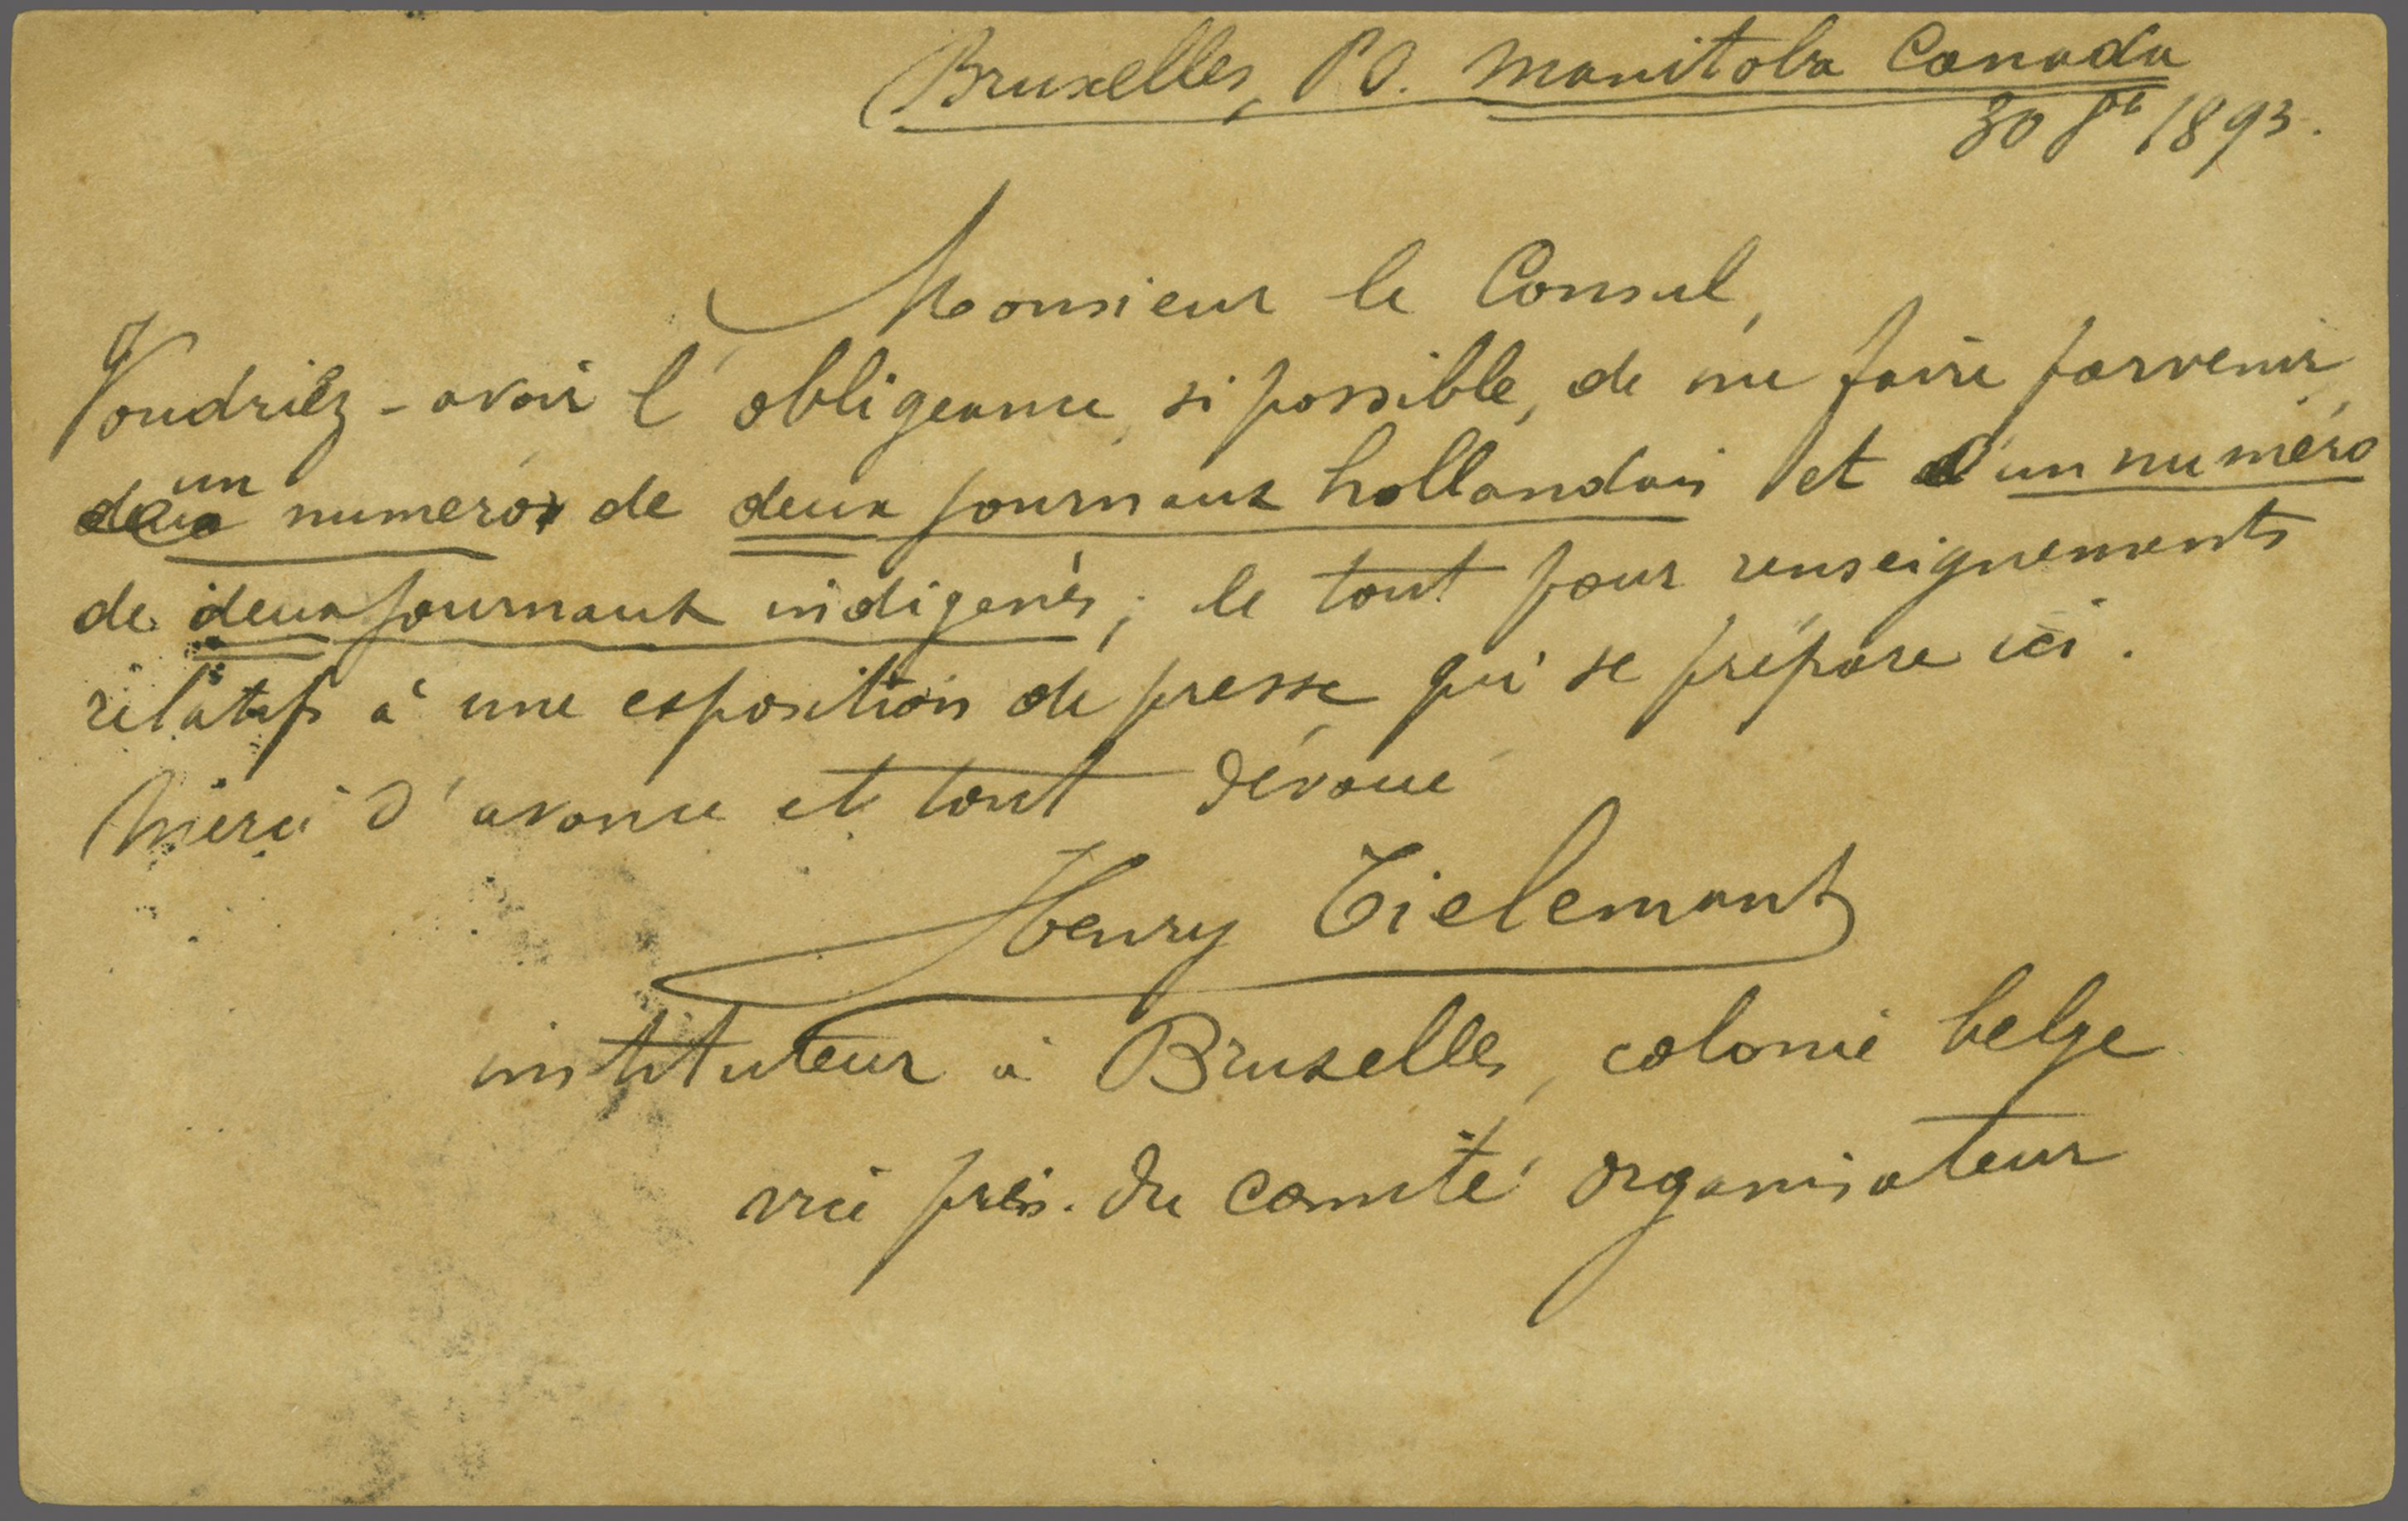 Bruxelles, P.O. Manitoba Canada
30 8bre 1893.
Monsieur le Consul,
Voudriez-avoir l'obligeance, si possible, de me faire parvenir,
un
numéro de deux journaux hollandais et d'un numéro
de deux journaux indigenès; le tout pour renseignements
relatifs à une exposition de presse qui se prépare ici.
Merci d'avance et tout dévoué
Henry Tielemans
instituteur à Bruxelles, colonie belge
vice prés. du comité organisateur